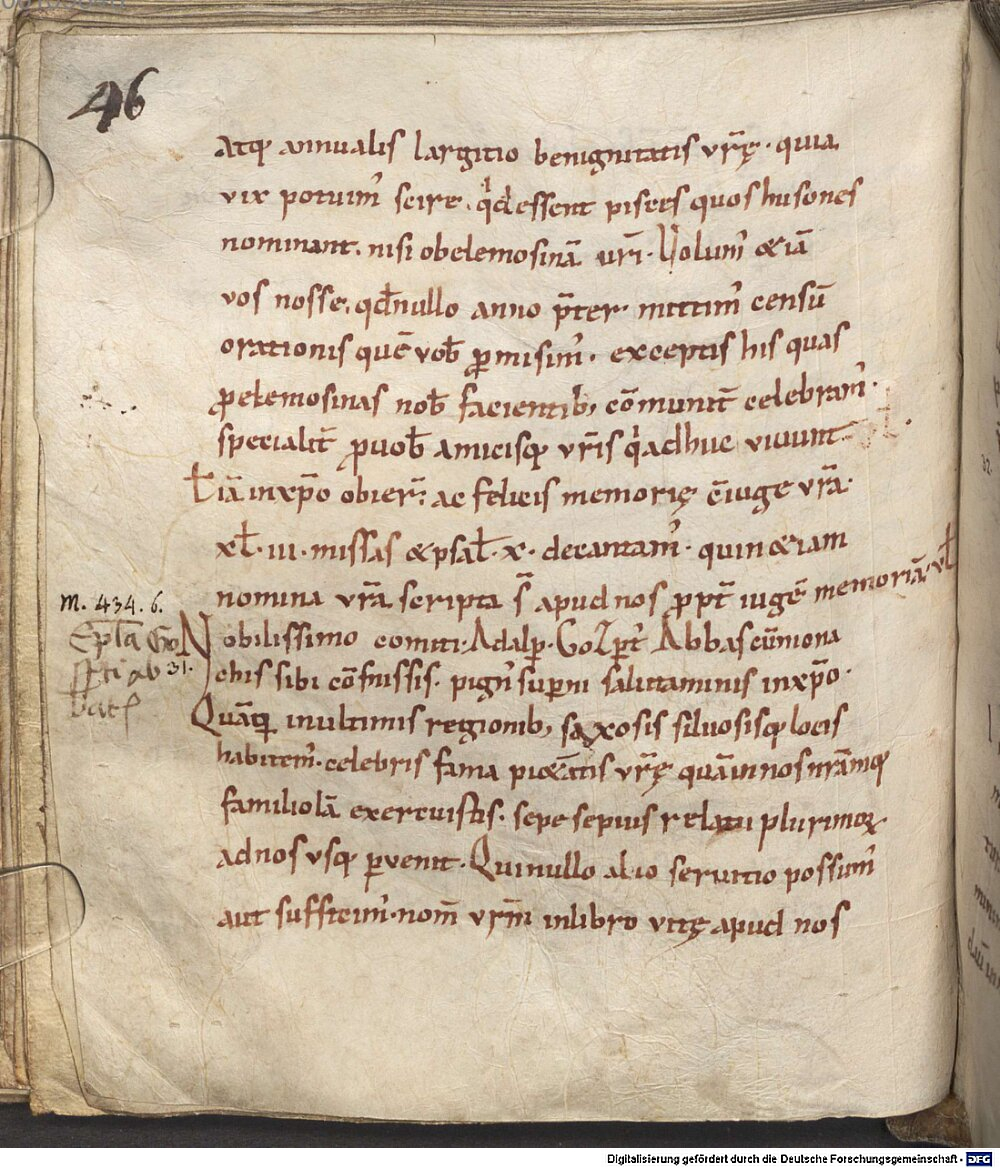 46
atq; annualis largitio benignitatis vr̄ę · quia
vix potuim' scire . qd essent pisces quos husones
nominant . nisi ob elemosinā vrī · Volum' &iā
vos nosse . qđ nullo anno p̄ter mittim' censū
orationis quē vob̄ ꝓmisim' . exceptis his quas
ꝓ elemosinas nob̄ facientib; cōmunit̄ celebram' .
specialit̄ ꝓ vob̄ amicisq; vr̄is qi adhuc viuunt
iā in xp̄o obier̄ . ac felicis memorię c̄iuge vr̄a .
xl . iii . missas & psal̄ . x . decantam' . quin &iam
nomina vr̄a scripta s̄ apud nos ꝓpt̄ iugē memoriā . vl̄
m. 434. 6.
Epl̄a Go
31.
Nobilissimo comiti . Adalp̄ . Gozp̄t Abbas cū mona
chis sibi cōmissis . pign' sup̄ni salutaminis in xp̄o .
Quāq in ultimis regionib; saxosis siluosisq; locis
habitem' . celebris fama pi&atis vr̄ę quā in nos nr̄amq;
familiolā exercuistis . sepe sepius relatu plurimoꝝ
ad nos vsq; ꝑvenit . Qui nullo alio seruitio possum'
aut sufficim' . nom̄ vr̄m in libro vitę apud nos
Digitalisierung gefördert durch die Deutsche Forschungsgemeinschaft - DFG